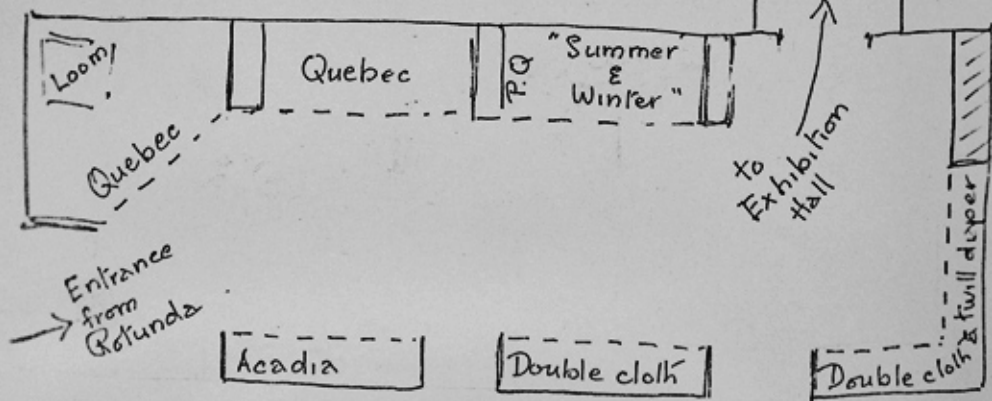 Loom
Quebec
Quebec
P.Q
"Summer
&
Winter"
to
Exhibition
Hall
Entrance
from
Rotunda
Acadia
Double cloth
Double cloth & twill diaper